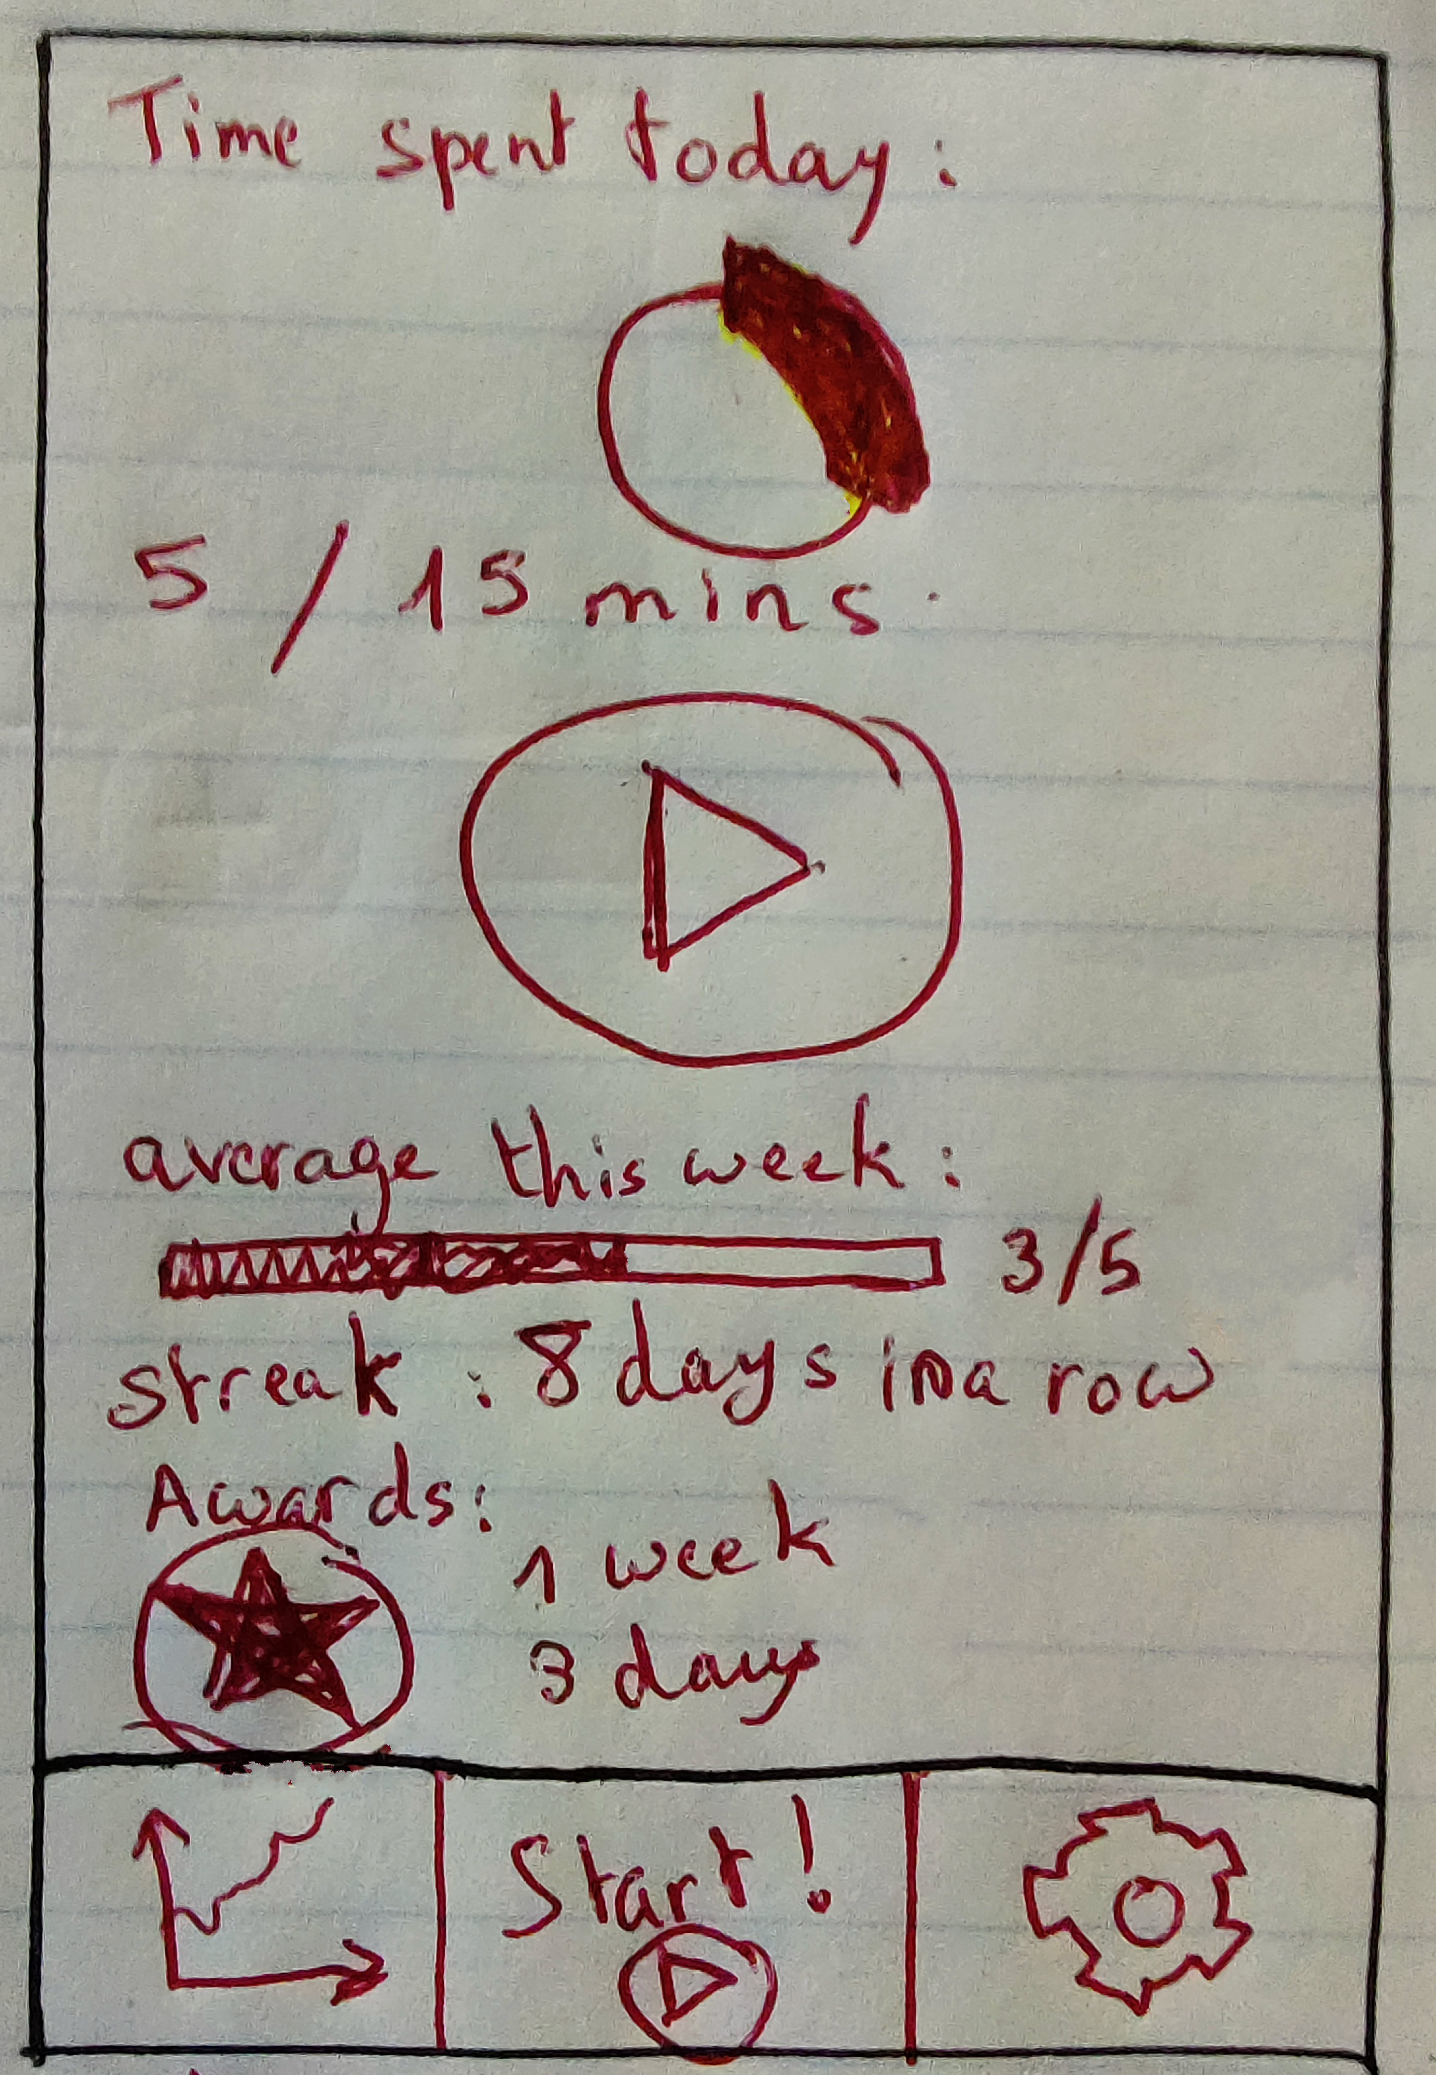 Time spent today:
5 / 15 mins.
average this week:
3/5
streak: 8 days in a row
Awards:
1 week
3 days
Start!